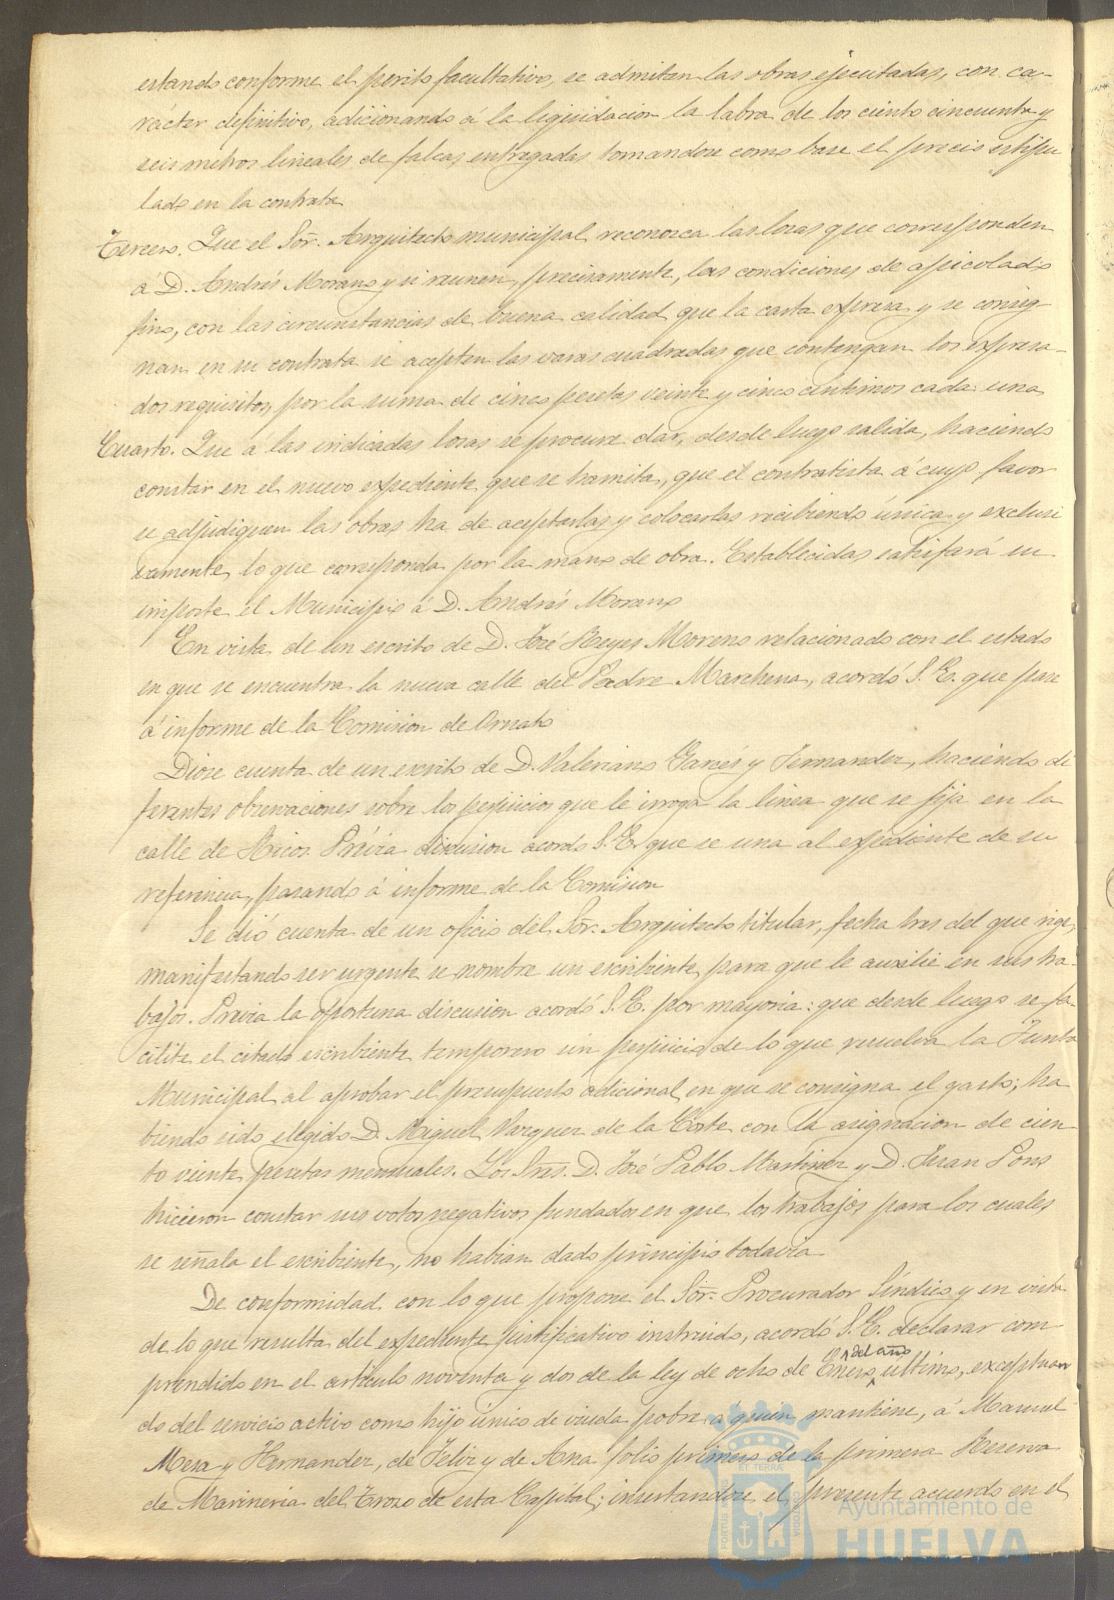 estando conforme el perito facultativo, se admitan las obras ejecutadas, con ca-
rácter definitivo, adicionando á la liquidacion la labra de los ciento cincuenta y
seis metros lineales de falcas entregadas tomandose como base el precio estipu
lado en la contrata
Tercero. Que el Sor. Arquitecto municipal reconozca las losas que corresponden
á D. Andrés Morano y si reunen, precisamente, las condiciones de apicolado
fino, con las circunstancias de buena calidad que la carta expresa y se consig
nan en su contrata se acepten las varas cuadradas que contengan los expresa-
dos requisitos, por la suma de cinco pesetas veinte y cinco centimos cada una
Cuarto. Que á las indicadas losas se procure dar, desde luego salida, haciendo
constar en el nuevo expediente que se tramita, que el contratista á cuyo favor
se adjudiquen las obras ha de aceptarlas y colocarlas recibiendo única y exclusi
vamente, lo que corresponda por la mano de obra. Establecidas satisfará su
importe el Municipio á D. Andrés Morano
En vista de un escrito de D. José Reyes Moreno relacionado con el estado
en que se encuentra la nueva calle del Padre Marchena, acordó S. E. que pase
á informe de la Comision de Ornato
Diose cuenta de un escrito de D. Valeriano Garcés y Fernandez, haciendo di
ferentes observaciones sobre los perjuicios que le irroga la línea que se fija en la
calle de Ricos. Prévia discusion acordó S. E. que se una al expediente de su
referencia, pasando á informe de la Comision
Se dió cuenta de un oficio del Sor. Arquitecto titular, fecha tres del que rige,
manifestando ser urgente se nombre un escribiente para que le auxilie en sus tra-
bajos. Previa la oportuna discusion acordó S. E. por mayoria: que desde luego se fa-
cilite el citado escribiente temporero sin perjuicio de lo que resuelva la Junta
Municipal al aprobar el presupuesto adicional en que se consigna el gasto; ha
biendo sido elegido D. Miguel Vazquez de la Corte con la asignacion de cien-
to veinte pesetas mensuales. Los Sres. D. José Pablo Martinez y D. Juan Pons
hicieron constar sus votos negativos fundados en que los trabajos para los cuales
se señala el escribiente, no habian dado principio todavia
De conformidad con lo que propone el Sor. Procurador Síndico y en vista
de lo que resulta del expediente justificativo instruido, acordó S. E. declarar com-
prendido en el artículo noventa y dos de la ley de ocho de Enero del año último, exceptuan
do del servicio activo como hijo único de viuda pobre a quien mantiene, á Manuel
Mesa y Hernandez, de Felix y de Ana folio primero de la primera Reserva
de Marineria del Trozo de esta Capital; insertandose el presente acuerdo en el
PORTUS MARIS
ET TERRAE
CUSTODIA
Ayuntamiento de
HUELVA